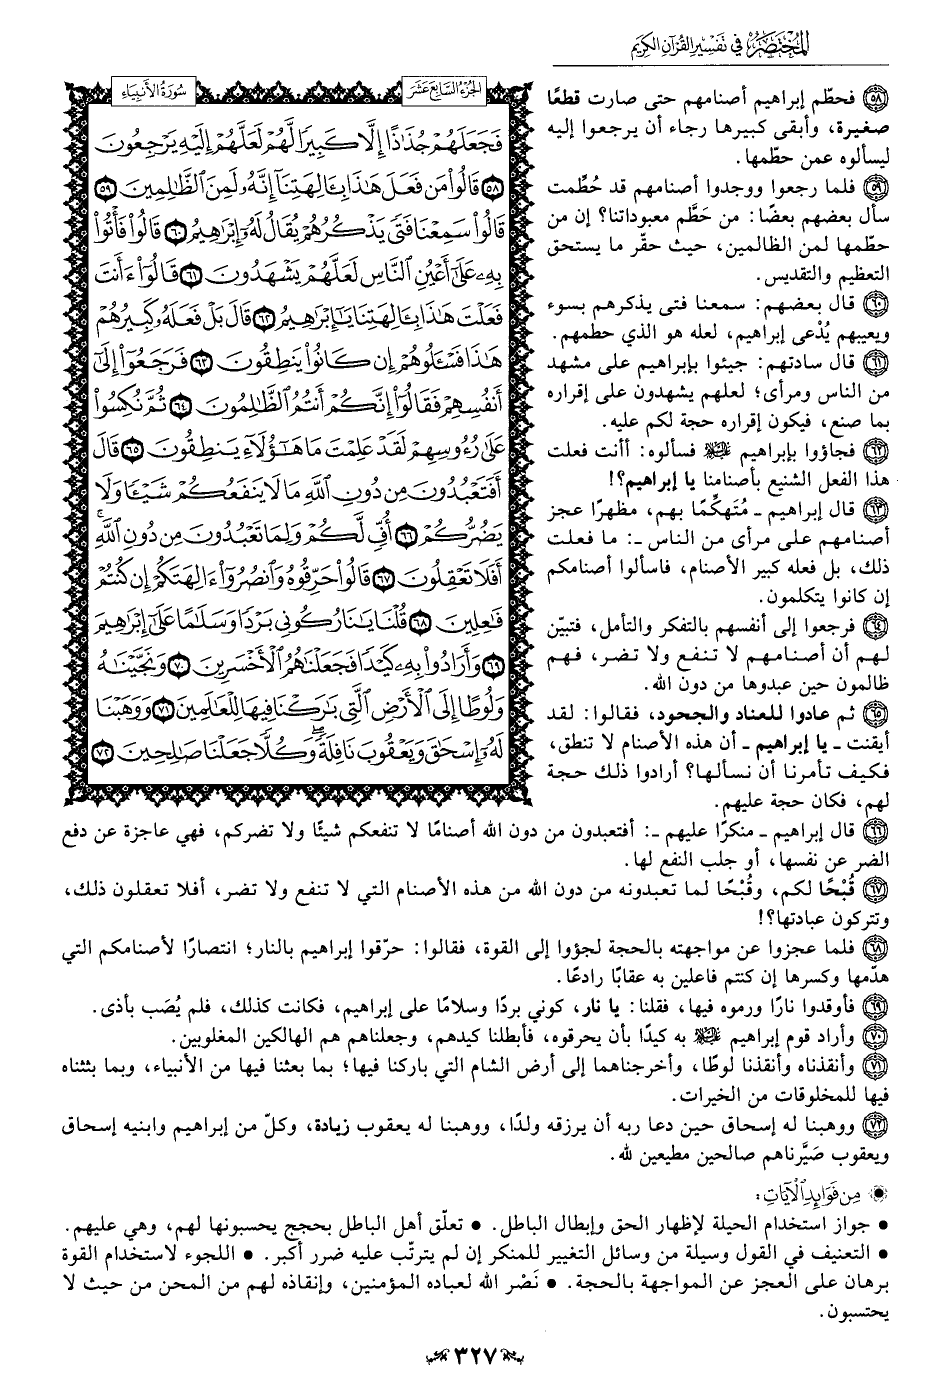 المختصر في تفسير القرآن الكريم
سورة الأنبياء
الجزء السابع عشر
فَجَعَلَهُمْ جُذَٰذًا إِلَّا كَبِيرًا لَّهُمْ لَعَلَّهُمْ إِلَيْهِ يَرْجِعُونَ
۝٥٨ قَالُوا۟ مَن فَعَلَ هَٰذَا بِـَٔالِهَتِنَآ إِنَّهُۥ لَمِنَ ٱلظَّٰلِمِينَ ۝٥٩
قَالُوا۟ سَمِعْنَا فَتًى يَذْكُرُهُمْ يُقَالُ لَهُۥٓ إِبْرَٰهِيمُ ۝٦٠ قَالُوا۟ فَأْتُوا۟
بِهِۦ عَلَىٰٓ أَعْيُنِ ٱلنَّاسِ لَعَلَّهُمْ يَشْهَدُونَ ۝٦١ قَالُوٓا۟ ءَأَنتَ
فَعَلْتَ هَٰذَا بِـَٔالِهَتِنَا يَٰٓإِبْرَٰهِيمُ ۝٦٢ قَالَ بَلْ فَعَلَهُۥ كَبِيرُهُمْ
هَٰذَا فَسْـَٔلُوهُمْ إِن كَانُوا۟ يَنطِقُونَ ۝٦٣ فَرَجَعُوٓا۟ إِلَىٰٓ
أَنفُسِهِمْ فَقَالُوٓا۟ إِنَّكُمْ أَنتُمُ ٱلظَّٰلِمُونَ ۝٦٤ ثُمَّ نُكِسُوا۟
عَلَىٰ رُءُوسِهِمْ لَقَدْ عَلِمْتَ مَا هَٰٓؤُلَآءِ يَنطِقُونَ ۝٦٥ قَالَ
أَفَتَعْبُدُونَ مِن دُونِ ٱللَّهِ مَا لَا يَنفَعُكُمْ شَيْـًٔا وَلَا
يَضُرُّكُمْ ۝٦٦ أُفٍّ لَّكُمْ وَلِمَا تَعْبُدُونَ مِن دُونِ ٱللَّهِۚ
أَفَلَا تَعْقِلُونَ ۝٦٧ قَالُوا۟ حَرِّقُوهُ وَٱنصُرُوٓا۟ ءَالِهَتَكُمْ إِن كُنتُمْ
فَٰعِلِينَ ۝٦٨ قُلْنَا يَٰنَارُ كُونِى بَرْدًا وَسَلَٰمًا عَلَىٰٓ إِبْرَٰهِيمَ
۝٦٩ وَأَرَادُوا۟ بِهِۦ كَيْدًا فَجَعَلْنَٰهُمُ ٱلْأَخْسَرِينَ ۝٧٠ وَنَجَّيْنَٰهُ
وَلُوطًا إِلَى ٱلْأَرْضِ ٱلَّتِى بَٰرَكْنَا فِيهَا لِلْعَٰلَمِينَ ۝٧١ وَوَهَبْنَا
لَهُۥٓ إِسْحَٰقَ وَيَعْقُوبَ نَافِلَةًۖ وَكُلًّا جَعَلْنَا صَٰلِحِينَ ۝٧٢
٥٨ فحطّم إبراهيم أصنامهم حتى صارت قطعًا
صغيرة، وأبقى كبيرها رجاء أن يرجعوا إليه
ليسألوه عمن حطّمها.
٥٩ فلما رجعوا ووجدوا أصنامهم قد حُطِّمت
سأل بعضهم بعضًا: من حَطَّم معبوداتنا؟ إن من
حطّمها لمن الظالمين، حيث حقّر ما يستحق
التعظيم والتقديس.
٦٠ قال بعضهم: سمعنا فتى يذكرهم بسوء
ويعيبهم يُدْعى إبراهيم، لعله هو الذي حطمهم.
٦١ قال سادتهم: جيئوا بإبراهيم على مشهد
من الناس ومرأى؛ لعلهم يشهدون على إقراره
بما صنع، فيكون إقراره حجة لكم عليه.
٦٢ فجاؤوا بإبراهيم عليه السلام فسألوه: أأنت فعلت
هذا الفعل الشنيع بأصنامنا يا إبراهيم؟!
٦٣ قال إبراهيم ـ مُتَهكِّمًا بهم، مظهرًا عجز
أصنامهم على مرأى من الناس ـ: ما فعلت
ذلك، بل فعله كبير الأصنام، فاسألوا أصنامكم
إن كانوا يتكلمون.
٦٤ فرجعوا إلى أنفسهم بالتفكر والتأمل، فتبيّن
لهم أن أصنامهم لا تنفع ولا تضر، فهم
ظالمون حين عبدوها من دون الله.
٦٥ ثم عادوا للعناد والجحود، فقالوا: لقد
أيقنت ـ يا إبراهيم ـ أن هذه الأصنام لا تنطق،
فكيف تأمرنا أن نسألها؟ أرادوا ذلك حجة
لهم، فكان حجة عليهم.
٦٦ قال إبراهيم ـ منكرًا عليهم ـ: أفتعبدون من دون الله أصنامًا لا تنفعكم شيئًا ولا تضركم، فهي عاجزة عن دفع
الضر عن نفسها، أو جلب النفع لها.
٦٧ قُبْحًا لكم، وقُبْحًا لما تعبدونه من دون الله من هذه الأصنام التي لا تنفع ولا تضر، أفلا تعقلون ذلك،
وتتركون عبادتها؟!
٦٨ فلما عجزوا عن مواجهته بالحجة لجؤوا إلى القوة، فقالوا: حرّقوا إبراهيم بالنار؛ انتصارًا لأصنامكم التي
هدّمها وكسرها إن كنتم فاعلين به عقابًا رادعًا.
٦٩ فأوقدوا نارًا ورموه فيها، فقلنا: يا نار، كوني بردًا وسلامًا على إبراهيم، فكانت كذلك، فلم يُصَب بأذى.
٧٠ وأراد قوم إبراهيم عليه السلام به كيدًا بأن يحرقوه، فأبطلنا كيدهم، وجعلناهم هم الهالكين المغلوبين.
٧١ وأنقذناه وأنقذنا لوطًا، وأخرجناهما إلى أرض الشام التي باركنا فيها؛ بما بعثنا فيها من الأنبياء، وبما بثثناه
فيها للمخلوقات من الخيرات.
٧٢ ووهبنا له إسحاق حين دعا ربه أن يرزقه ولدًا، ووهبنا له يعقوب زيادة، وكلّ من إبراهيم وابنيه إسحاق
ويعقوب صَيَّرناهم صالحين مطيعين لله.
من فوائد الآيات:
• جواز استخدام الحيلة لإظهار الحق وإبطال الباطل. • تعلّق أهل الباطل بحجج يحسبونها لهم، وهي عليهم.
• التعنيف في القول وسيلة من وسائل التغيير للمنكر إن لم يترتّب عليه ضرر أكبر. • اللجوء لاستخدام القوة
برهان على العجز عن المواجهة بالحجة. • نَصْر الله لعباده المؤمنين، وإنقاذه لهم من المحن من حيث لا
يحتسبون.
٣٢٧